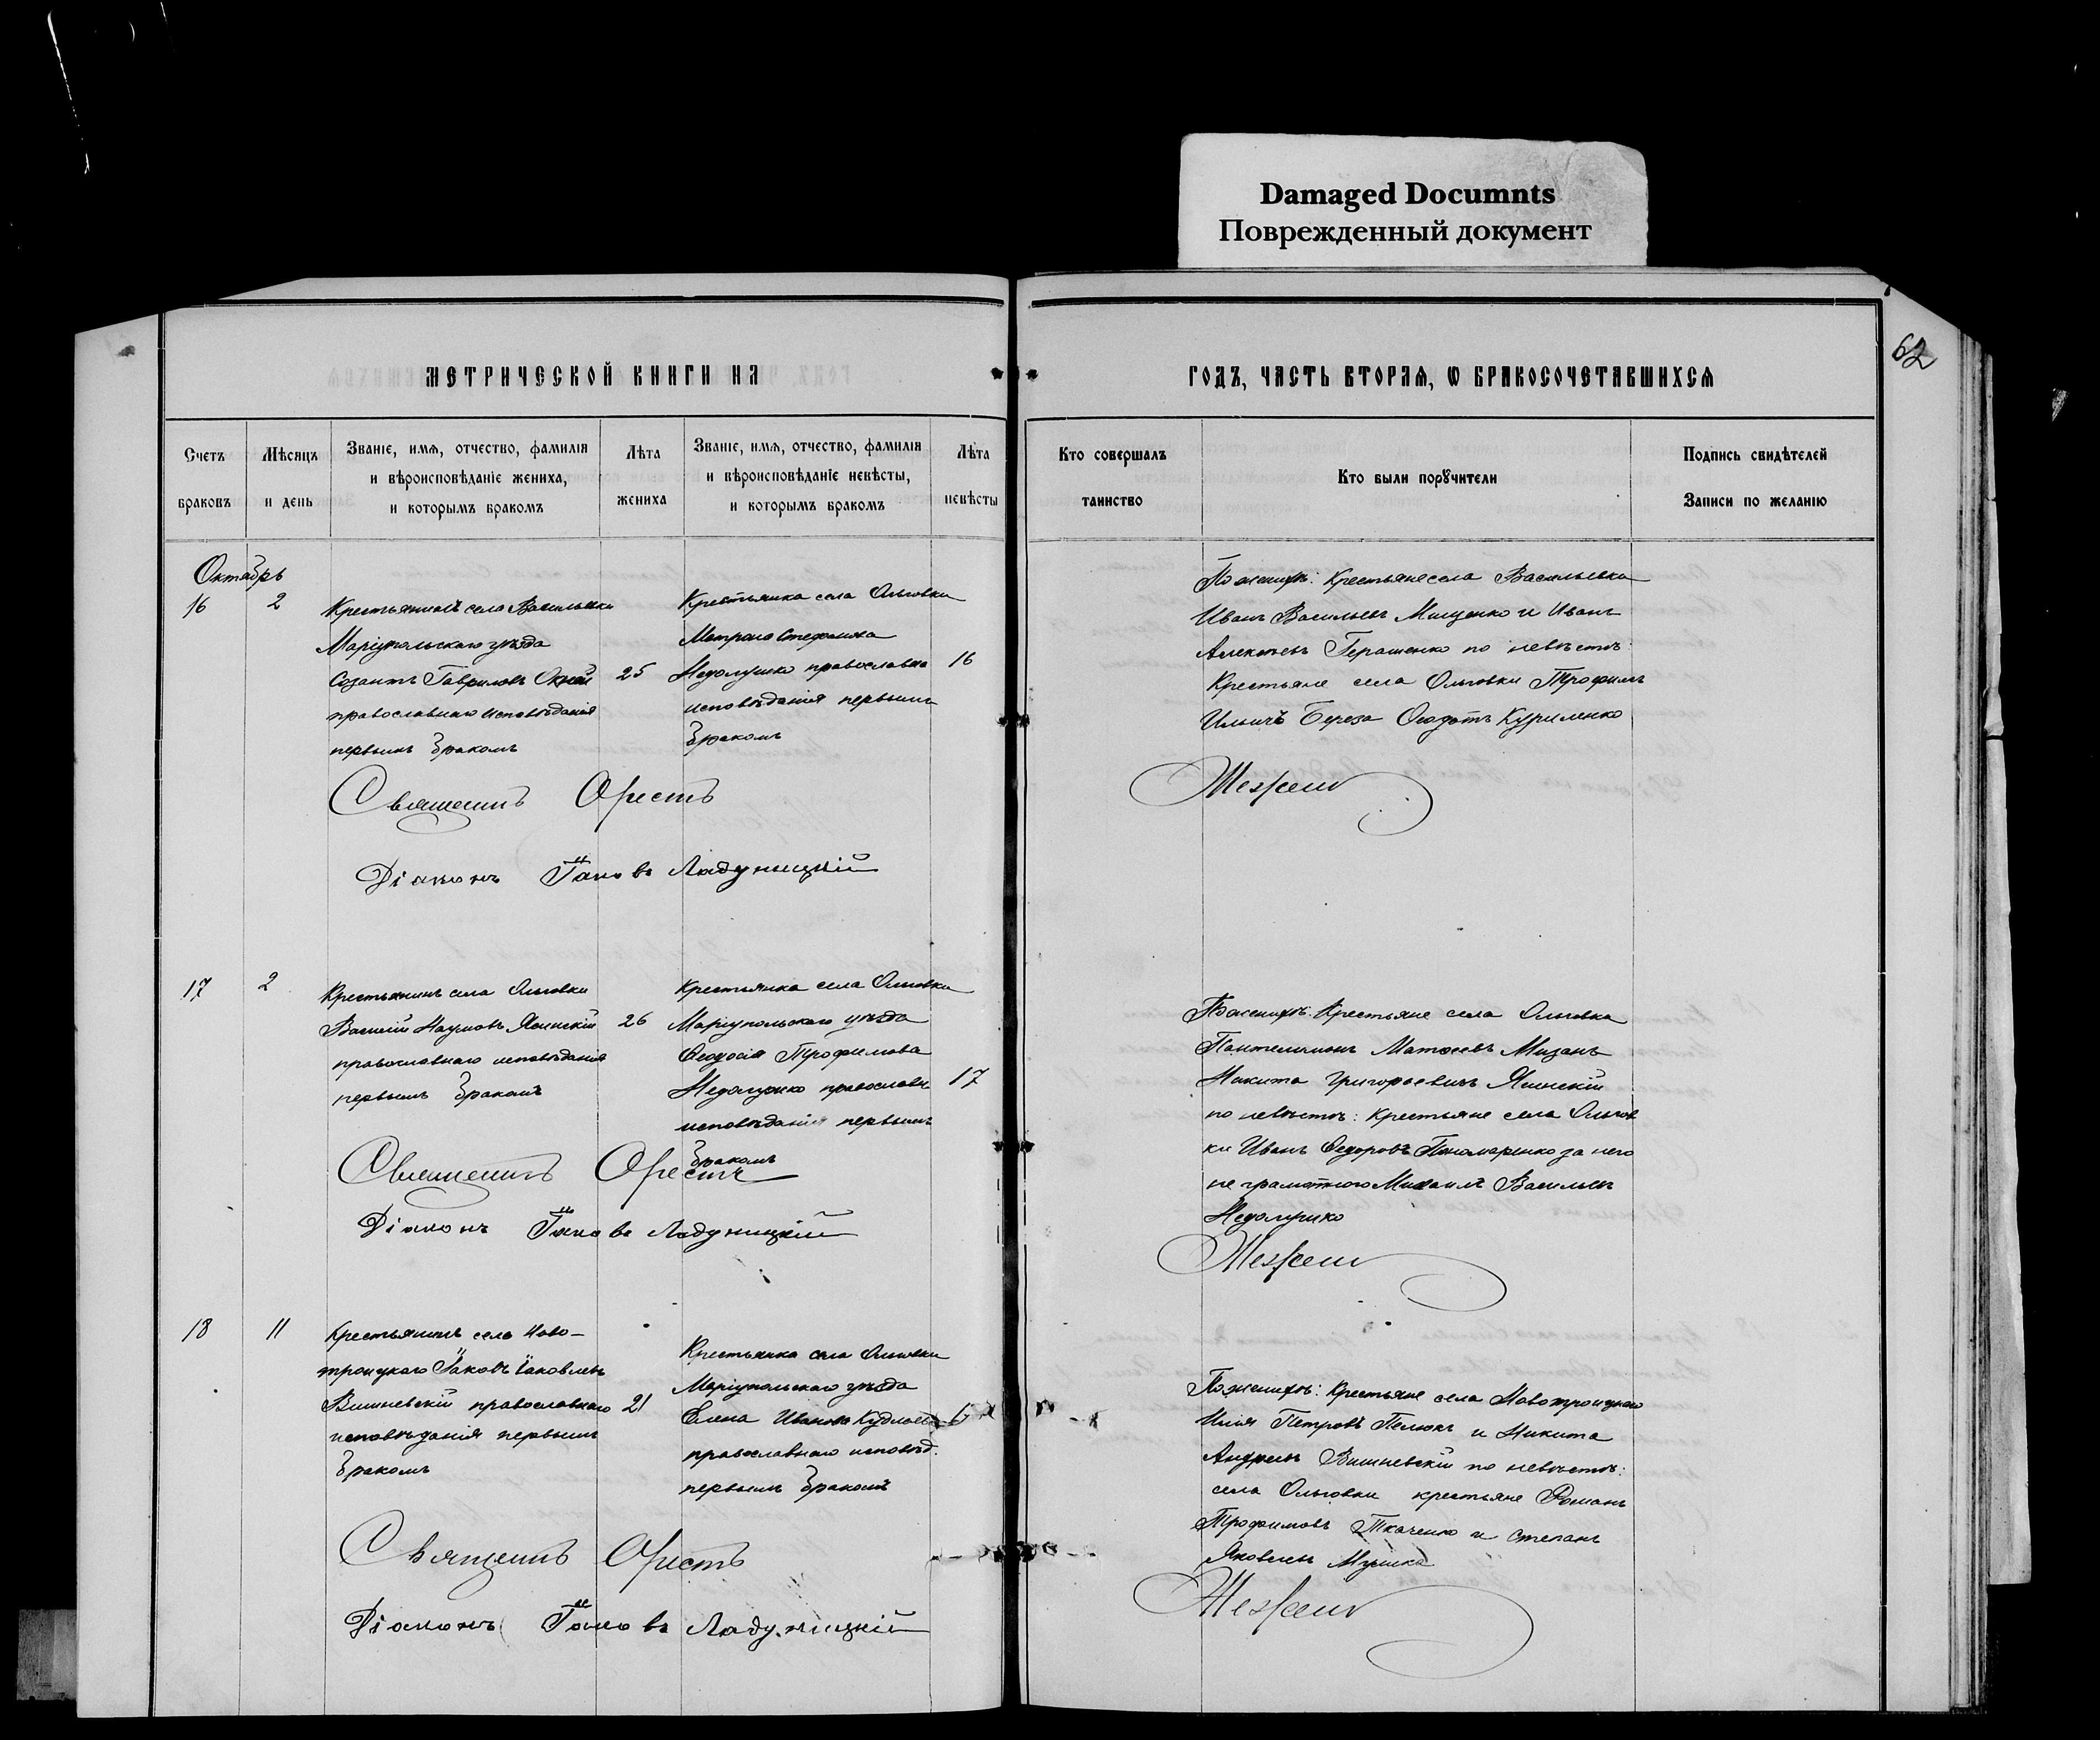 Damaged Documnts
Поврежденный документ
62
МЕТРИЧЕСКОЙ КНИГИ НА
ГОДЪ, ЧАСТЬ ВТОРАЯ, Ѡ БРАКОСОЧЕТАВШИХСЯ
Счетъ браковъ
Мѣсяцъ и день
Званіе, имя, отчество, фамилія
и вѣроисповѣданіе жениха,
и которымъ бракомъ
Лѣта жениха
Званіе, имя, отчество, фамилія
и вѣроисповѣданіе невѣсты,
и которымъ бракомъ
Лѣта невѣсты
Кто совершалъ таинство
Кто были поручители
Подпись свидѣтелей
Записи по желанію
Октябрь
16
2
Крестьянинъ села Васильевки
Маріупольскаго уѣзда
Созантъ Гавриловъ
православнаго исповѣданія
первымъ бракомъ
25
Крестьянка села Ольговки
Матрона Стефанова
Недолужко православна
исповѣданія первымъ
бракомъ
16
По женихѣ: Крестьяне села Васильевки
Иванъ Васильевъ Мищенко и Иванъ
Алексѣевъ Геращенко по невѣстѣ:
Крестьяне села Ольговки Трофимъ
Ильичъ Береза Ѳеодотъ Куриленко
Священникъ Орестъ
Діаконъ Іаковъ Ладуницкій
17
2
Крестьянинъ села Ольговки
Василій Наумовъ Ясинскій
православнаго исповѣданія
первымъ бракомъ
26
Крестьянка села Ольговки
Маріупольскаго уѣзда
Ѳеодосія Трофимова
Недолужко православн
исповѣданія первымъ
бракомъ
17
По женихѣ: Крестьяне села Ольговка
Пантелимонъ Матѳеевъ Мизанъ
Никита Григорьевичъ Ясинскій
по невѣстѣ: Крестьяне села Ольгов
ки Иванъ Ѳедоровъ Пономаренко за него
не грамотного Михаилъ Васильев
Недолужко
Священникъ Орестъ
Діаконъ Іаковъ Ладуницкій
18
11
Крестьянинъ села Ново-
троицкаго Іаковъ Іаковлевъ
Вишневскій православнаго
исповѣданія первымъ
бракомъ
21
Крестьянка села Ольговки
Маріупольскаго уѣзда
Елена Иванова
православнаго исповѣд.
первымъ бракомъ
По женихѣ: Крестьяне села Новотроицкаго
Илія Петровъ Пелюхъ и Никита
Андреевъ Вишневскій по невѣстѣ:
села Ольговки крестьяне Романъ
Трофимовъ Ткаченко и Степанъ
Яковлевъ Мушка
Священникъ Орестъ
Діаконъ Іаковъ Ладуницкій